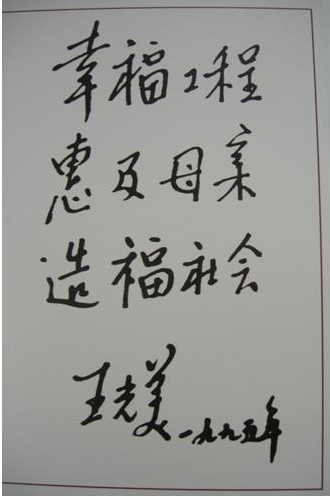 幸福工程
惠及母亲
造福社会
王光美 一九九五年